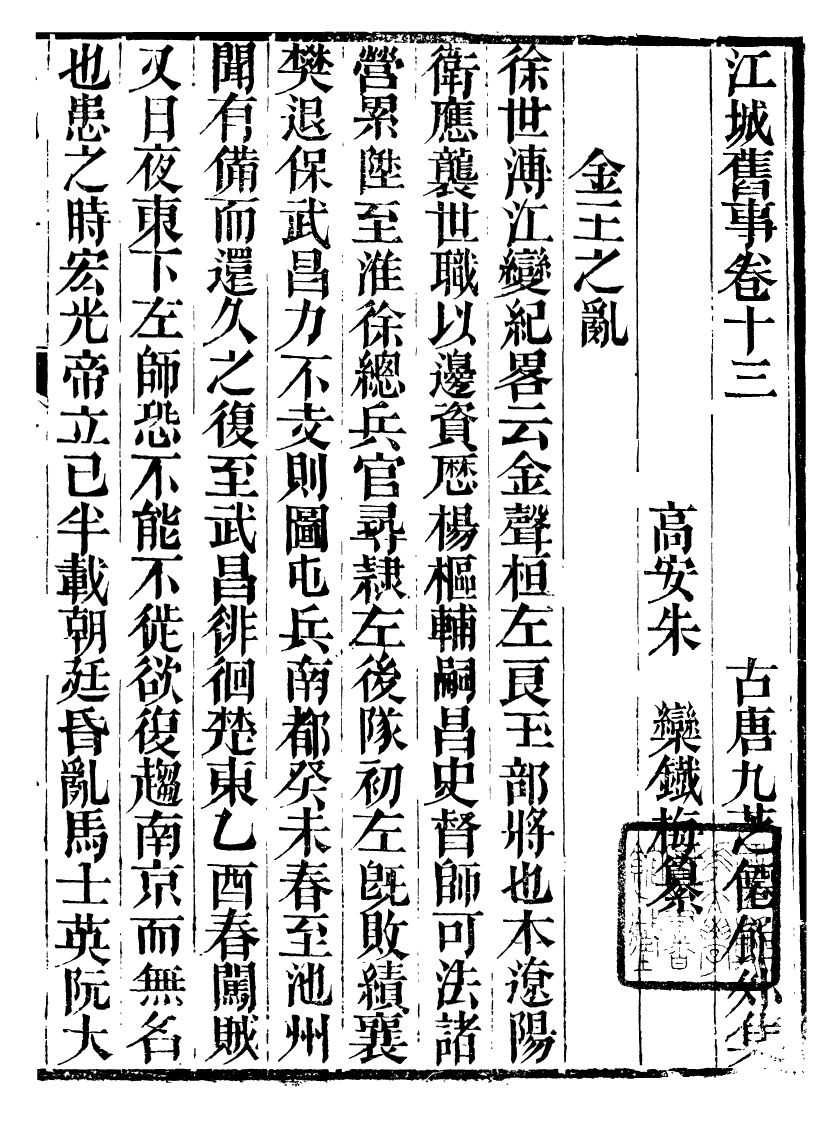 江城舊事卷十三　古唐九芝僊館外集
高安朱　欒鐵梅纂
金王之亂
徐世溥江變紀畧云金聲桓左良玉部將也本遼陽
衛應襲世職以邊資歴楊樞輔嗣昌史督師可法諸
營累陞至淮徐總兵官尋隸左後隊初左旣敗績襄
樊退保武昌力不支則圖屯兵南都癸未春至池州
聞有備而還久之復至武昌徘徊楚東乙酉春闖賊
又日夜東下左師恐不能不徙欲復趨南京而無名
也患之時宏光帝立已半載朝廷昏亂馬士英阮大